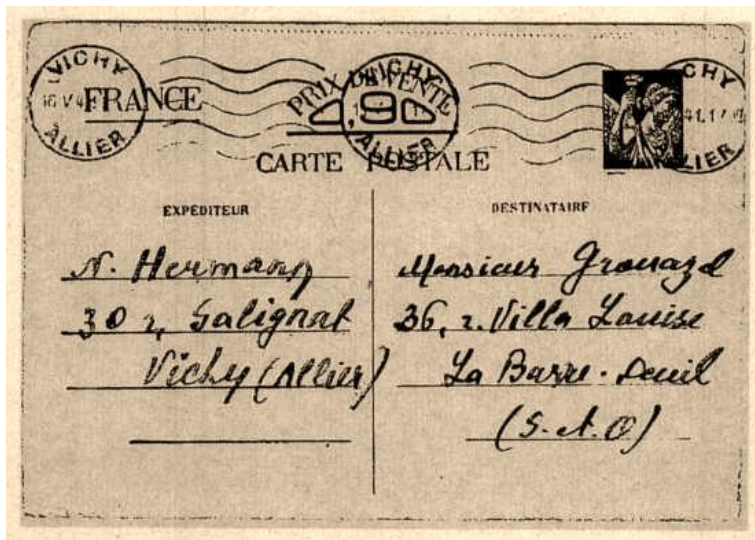 VICHY
ALLIER
FRANCE
PRIX DE VENTE
VICHY
ALLIER
CARTE POSTALE
EXPÉDITEUR
N. Hermann
30 r, Galignat
Vichy (Allier)
DESTINATAIRE
Monsieur Grouazd
36, r. Villa Louise
La Barre-Deuil
(S.-A.O)